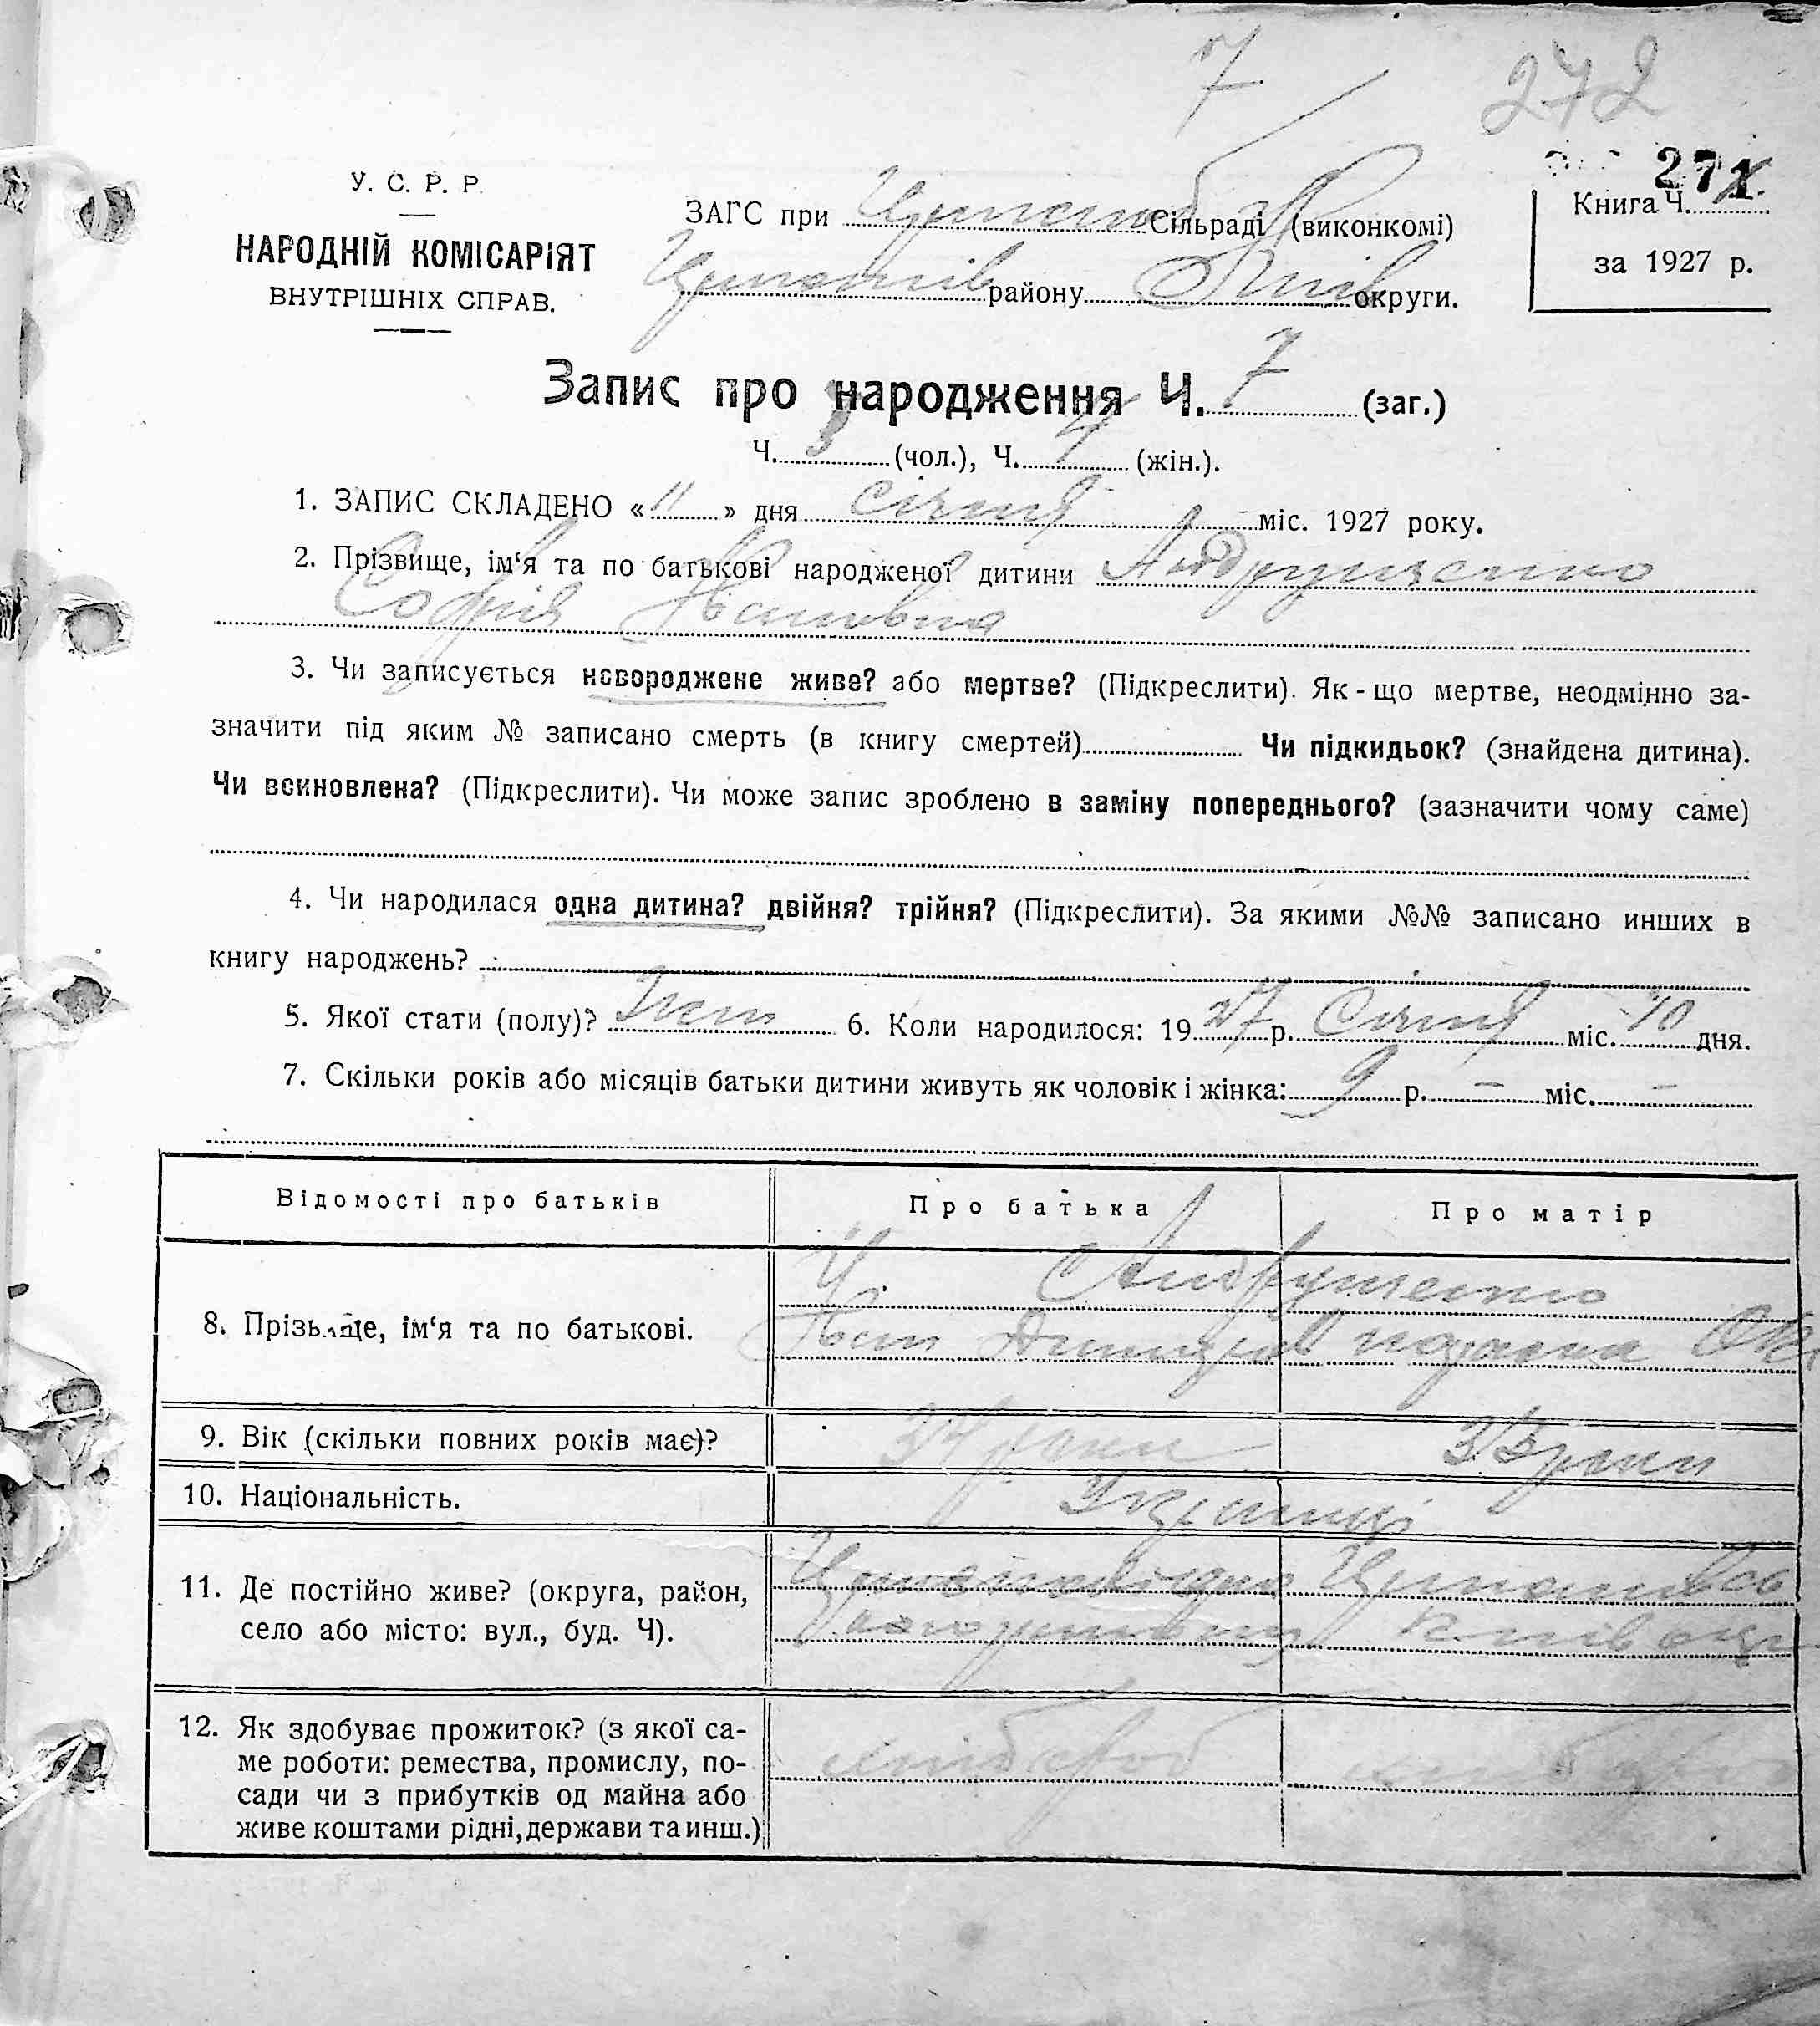 7
272
271
У. С. Р. Р.
НАРОДНІЙ КОМІСАРІЯТ
ВНУТРІШНІХ СПРАВ.
ЗАГС при Сільраді (виконкомі)
району Київ округи.
Книга Ч.
за 1927 р.
Запис про народження Ч. 7 (заг.)
Ч. 3 (чол.), Ч. 4 (жін.).
1. ЗАПИС СКЛАДЕНО «11» дня Січня міс. 1927 року.
2. Прізвище, ім‘я та по батькові народженої дитини Андрущенко
Софія Іванівна
3. Чи записується новороджене живе? або мертве? (Підкреслити). Як-що мертве, неодмінно за-
значити під яким № записано смерть (в книгу смертей) Чи підкидьок? (знайдена дитина).
Чи всиновлена? (Підкреслити). Чи може запис зроблено в заміну попереднього? (зазначити чому саме)
4. Чи народилася одна дитина? двійня? трійня? (Підкреслити). За якими №№ записано инших в
книгу народжень?
5. Якої стати (полу)? Жін 6. Коли народилося: 1927 р. Січня міс. 10 дня.
7. Скільки років або місяців батьки дитини живуть як чоловік і жінка: 9 р. — міс. —
Відомості про батьків Про батька Про матір
8. Прізвище, ім‘я та по батькові. Андрущенко
Іван
9. Вік (скільки повних років має)? 34 роки 33 роки
10. Національність. Українці
11. Де постійно живе? (округа, район,
село або місто: вул., буд. Ч).
12. Як здобуває прожиток? (з якої са-
ме роботи: ремества, промислу, по-
сади чи з прибутків од майна або
живе коштами рідні, держави та инш.)
хлібороб